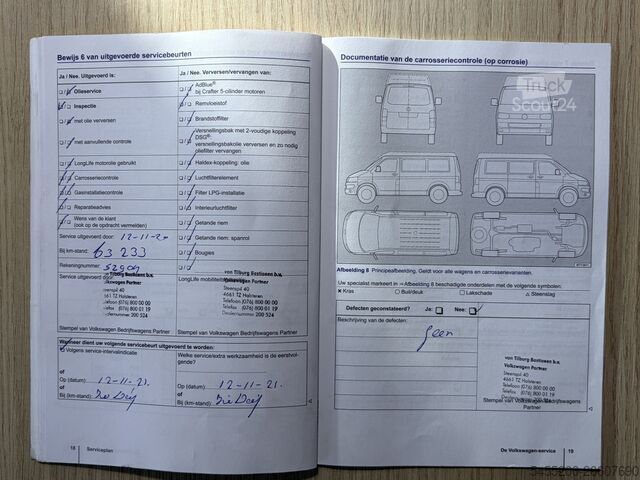 Bewijs 6 van uitgevoerde servicebeurten
Ja / Nee. Uitgevoerd is:
Olieservice
Inspectie
met olie verversen
met aanvullende controle
LongLife motorolie gebruikt
Carrosseriecontrole
Gasinstallatiecontrole
Reparatieadvies
Wens van de klant
(ook op de opdracht vermelden)
Service uitgevoerd door: 12-11-20
Bij km-stand: 63 233
Rekeningnummer:
Service uitgevoerd door:
van Tilburg Bastianen b.v.
Volkswagen Partner
Steenspil 40
4661 TZ Halsteren
Telefoon (076) 800 00 00
Telefax (076) 800 01 19
Dealernummer 200 524
Stempel van Volkswagen Bedrijfswagens Partner
Ja / Nee. Verversen/vervangen van:
AdBlue®
bij Crafter 5-cilinder motoren
Remvloeistof
Brandstoffilter
Versnellingsbak met 2-voudige koppeling
DSG®:
versnellingsbakolie verversen en zo nodig
oliefilter vervangen
Haldex-koppeling: olie
Luchtfilterelement
Filter LPG-installatie
Interieurluchtfilter
Getande riem
Getande riem: spanrol
Bougies
LongLife mobiliteits
van Tilburg Bastianen b.v.
Volkswagen Partner
Steenspil 40
4661 TZ Halsteren
Telefoon (076) 800 00 00
Telefax (076) 800 01 19
Dealernummer 200 524
Stempel van Volkswagen Bedrijfswagens Partner
Wanneer dient uw volgende servicebeurt uitgevoerd te worden:
Volgens service-intervalindicatie
of
Op (datum): 12-11-21
of
Bij (km-stand):
Welke service/extra werkzaamheid is de eerstvol-
gende?
Op (datum): 12-11-21.
of
Bij (km-stand):
18 Serviceplan
Documentatie van de carrosseriecontrole (op corrosie)
Truck
Scout24
Afbeelding 8 Principeafbeelding. Geldt voor alle wagens en carrosserievarianten.
Uw specialist markeert in ⇒Afbeelding 8 beschadigde onderdelen met de volgende symbolen:
× Kras ○ Buil/deuk □ Lakschade △ Steenslag
Defecten geconstateerd? Ja: Nee:
Beschrijving van de defecten:
geen
van Tilburg Bastianen b.v.
Volkswagen Partner
Steenspil 40
4661 TZ Halsteren
Telefoon (076) 800 00 00
Telefax (076) 800 01 19
Dealernummer 200 524
Stempel van Volkswagen Bedrijfswagens
Partner
De Volkswagen-service 19